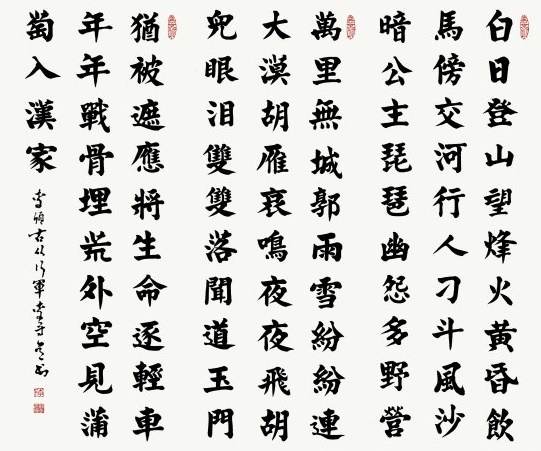 白日登山望烽火黃昏飲
馬傍交河行人刁斗風沙
暗公主琵琶幽怨多野營
萬里無城郭雨雪紛紛連
大漠胡雁哀鳴夜夜飛胡
兒眼泪雙雙落聞道玉門
猶被遮應將生命逐輕車
年年戰骨埋荒外空見蒲
萄入漢家
李頎古从行軍